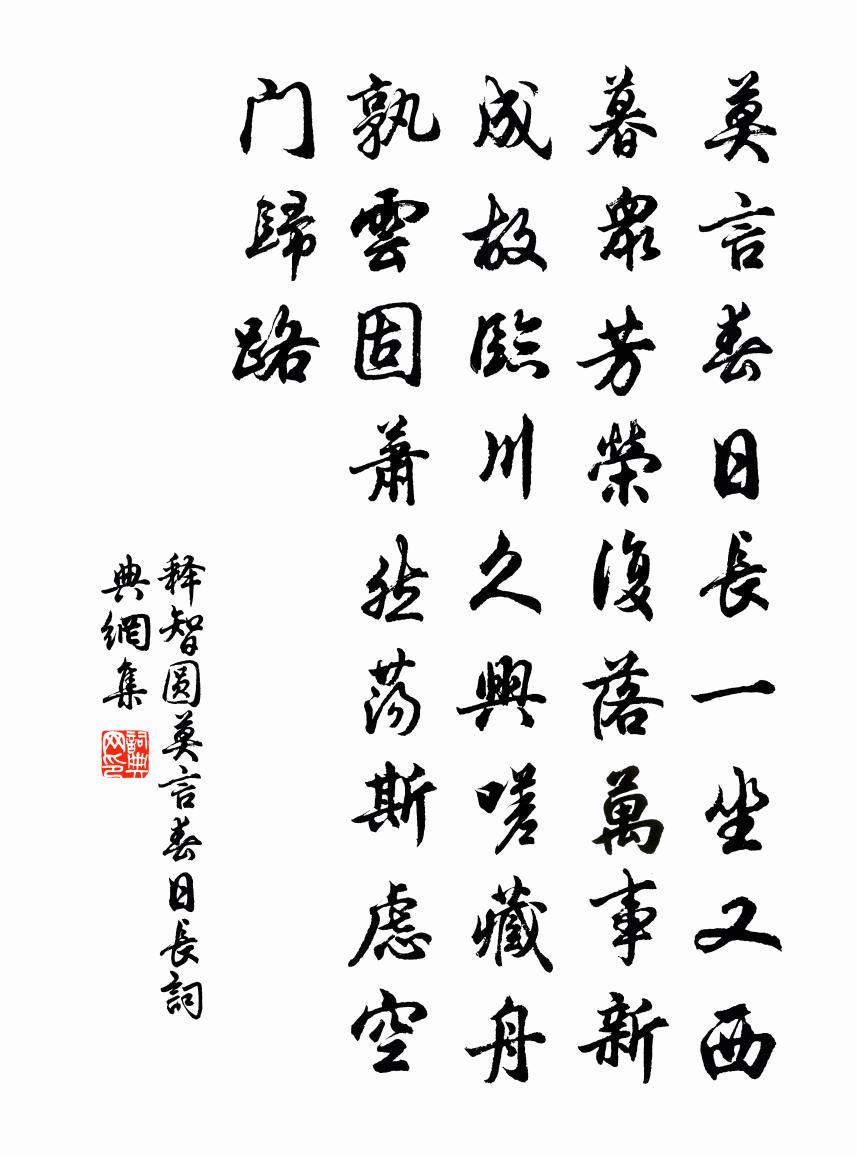 莫言春日長一坐又西
暮眾芳榮復落萬事新
成故臨川久興嗟藏舟
孰雲固蕭然蕩斯慮空
门歸路
释智圆莫言春日長詞
典網集
詞典
网印